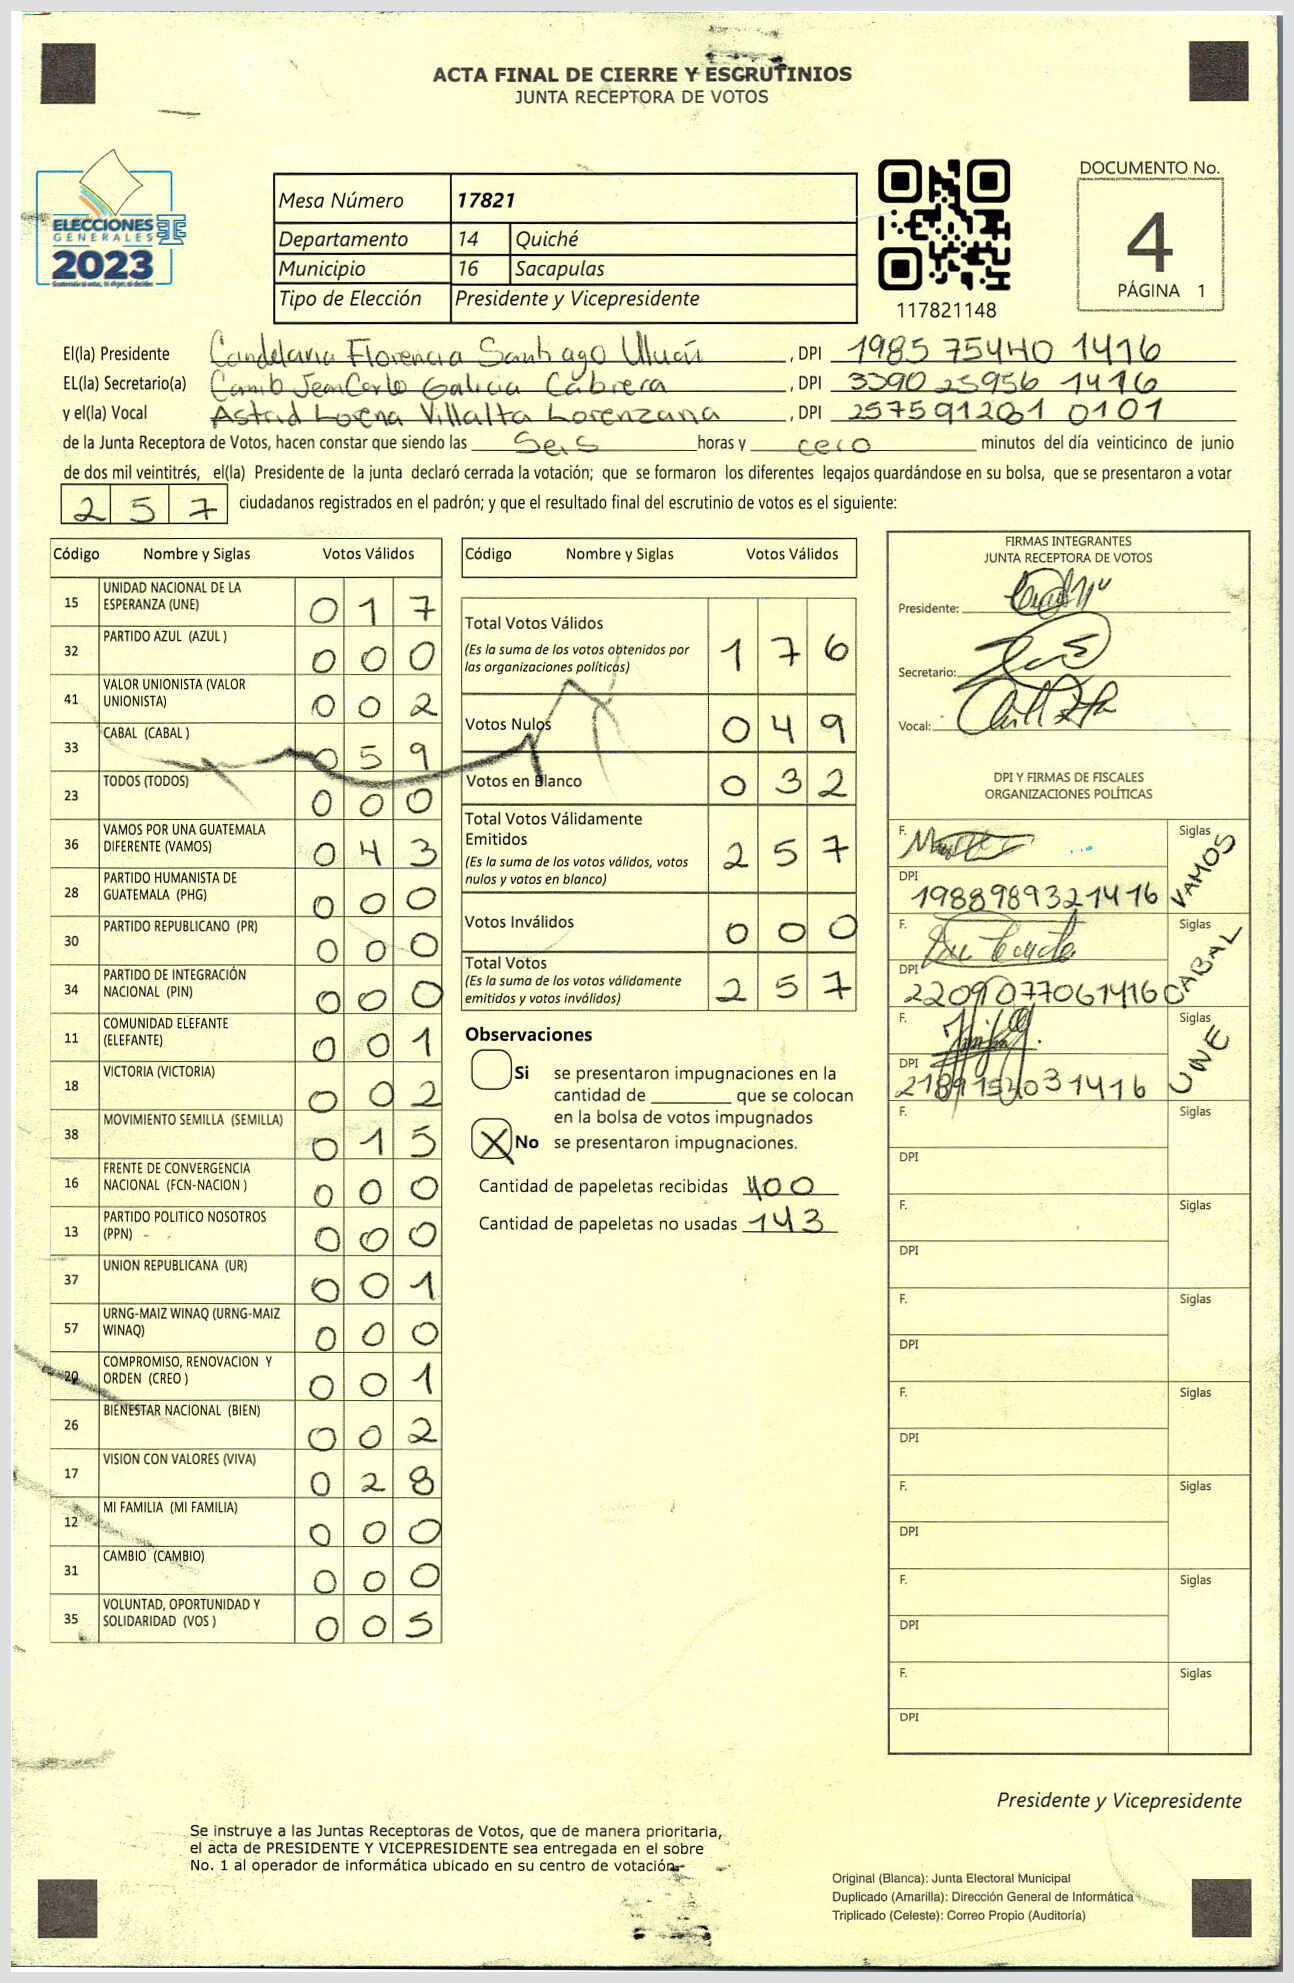 ACTA FINAL DE CIERRE Y ESCRUTINIOS
JUNTA RECEPTORA DE VOTOS
ELECCIONES
GENERALES
2023
Mesa Número 17821
Departamento 14 Quiché
Municipio 16 Sacapulas
Tipo de Elección Presidente y Vicepresidente
117821148
DOCUMENTO No.
4
PÁGINA 1
El(la) Presidente Candelaria Florencia Santiago , DPI 1985 75440 1416
EL(la) Secretario(a) JeanCarlo Galicia Cabrera , DPI 3390 25956 1416
y el(la) Vocal Astrid Lorena Villalta Lorenzana , DPI 2575 91261 0101
de la Junta Receptora de Votos, hacen constar que siendo las Seis horas y cero minutos del día veinticinco de junio
de dos mil veintitrés, el(la) Presidente de la junta declaró cerrada la votación; que se formaron los diferentes legajos guardándose en su bolsa, que se presentaron a votar
257 ciudadanos registrados en el padrón; y que el resultado final del escrutinio de votos es el siguiente:
Código Nombre y Siglas Votos Válidos
15 UNIDAD NACIONAL DE LA ESPERANZA (UNE) 0 1 7
32 PARTIDO AZUL (AZUL ) 0 0 0
41 VALOR UNIONISTA (VALOR UNIONISTA) 0 0 2
33 CABAL (CABAL ) 0 5 9
23 TODOS (TODOS) 0 0 0
36 VAMOS POR UNA GUATEMALA DIFERENTE (VAMOS) 0 4 3
28 PARTIDO HUMANISTA DE GUATEMALA (PHG) 0 0 0
30 PARTIDO REPUBLICANO (PR) 0 0 0
34 PARTIDO DE INTEGRACIÓN NACIONAL (PIN) 0 0 0
11 COMUNIDAD ELEFANTE (ELEFANTE) 0 0 1
18 VICTORIA (VICTORIA) 0 0 2
38 MOVIMIENTO SEMILLA (SEMILLA) 0 1 5
16 FRENTE DE CONVERGENCIA NACIONAL (FCN-NACION ) 0 0 0
13 PARTIDO POLITICO NOSOTROS (PPN) 0 0 0
37 UNION REPUBLICANA (UR) 0 0 1
57 URNG-MAIZ WINAQ (URNG-MAIZ WINAQ) 0 0 0
20 COMPROMISO, RENOVACION Y ORDEN (CREO ) 0 0 1
26 BIENESTAR NACIONAL (BIEN) 0 0 2
17 VISION CON VALORES (VIVA) 0 2 8
12 MI FAMILIA (MI FAMILIA) 0 0 0
31 CAMBIO (CAMBIO) 0 0 0
35 VOLUNTAD, OPORTUNIDAD Y SOLIDARIDAD (VOS ) 0 0 5
Código Nombre y Siglas Votos Válidos
Total Votos Válidos 1 7 6
(Es la suma de los votos obtenidos por
las organizaciones políticas)
Votos Nulos 0 4 9
Votos en Blanco 0 3 2
Total Votos Válidamente
Emitidos 2 5 7
(Es la suma de los votos válidos, votos
nulos y votos en blanco)
Votos Inválidos 0 0 0
Total Votos 2 5 7
(Es la suma de los votos válidamente
emitidos y votos inválidos)
Observaciones
Si se presentaron impugnaciones en la
cantidad de ________ que se colocan
en la bolsa de votos impugnados
X No se presentaron impugnaciones.
Cantidad de papeletas recibidas 400
Cantidad de papeletas no usadas 143
FIRMAS INTEGRANTES
JUNTA RECEPTORA DE VOTOS
Presidente:
Secretario:
Vocal:
DPI Y FIRMAS DE FISCALES
ORGANIZACIONES POLÍTICAS
F. Siglas VAMOS
DPI 1988989321416
F. Siglas CABAL
DPI 2209077061416
F. Siglas UNE
DPI
F. Siglas
DPI
F. Siglas
DPI
F. Siglas
DPI
F. Siglas
DPI
F. Siglas
DPI
F. Siglas
DPI
F. Siglas
DPI
Presidente y Vicepresidente
Se instruye a las Juntas Receptoras de Votos, que de manera prioritaria,
el acta de PRESIDENTE Y VICEPRESIDENTE sea entregada en el sobre
No. 1 al operador de informática ubicado en su centro de votación.
Original (Blanca): Junta Electoral Municipal
Duplicado (Amarilla): Dirección General de Informática
Triplicado (Celeste): Correo Propio (Auditoría)